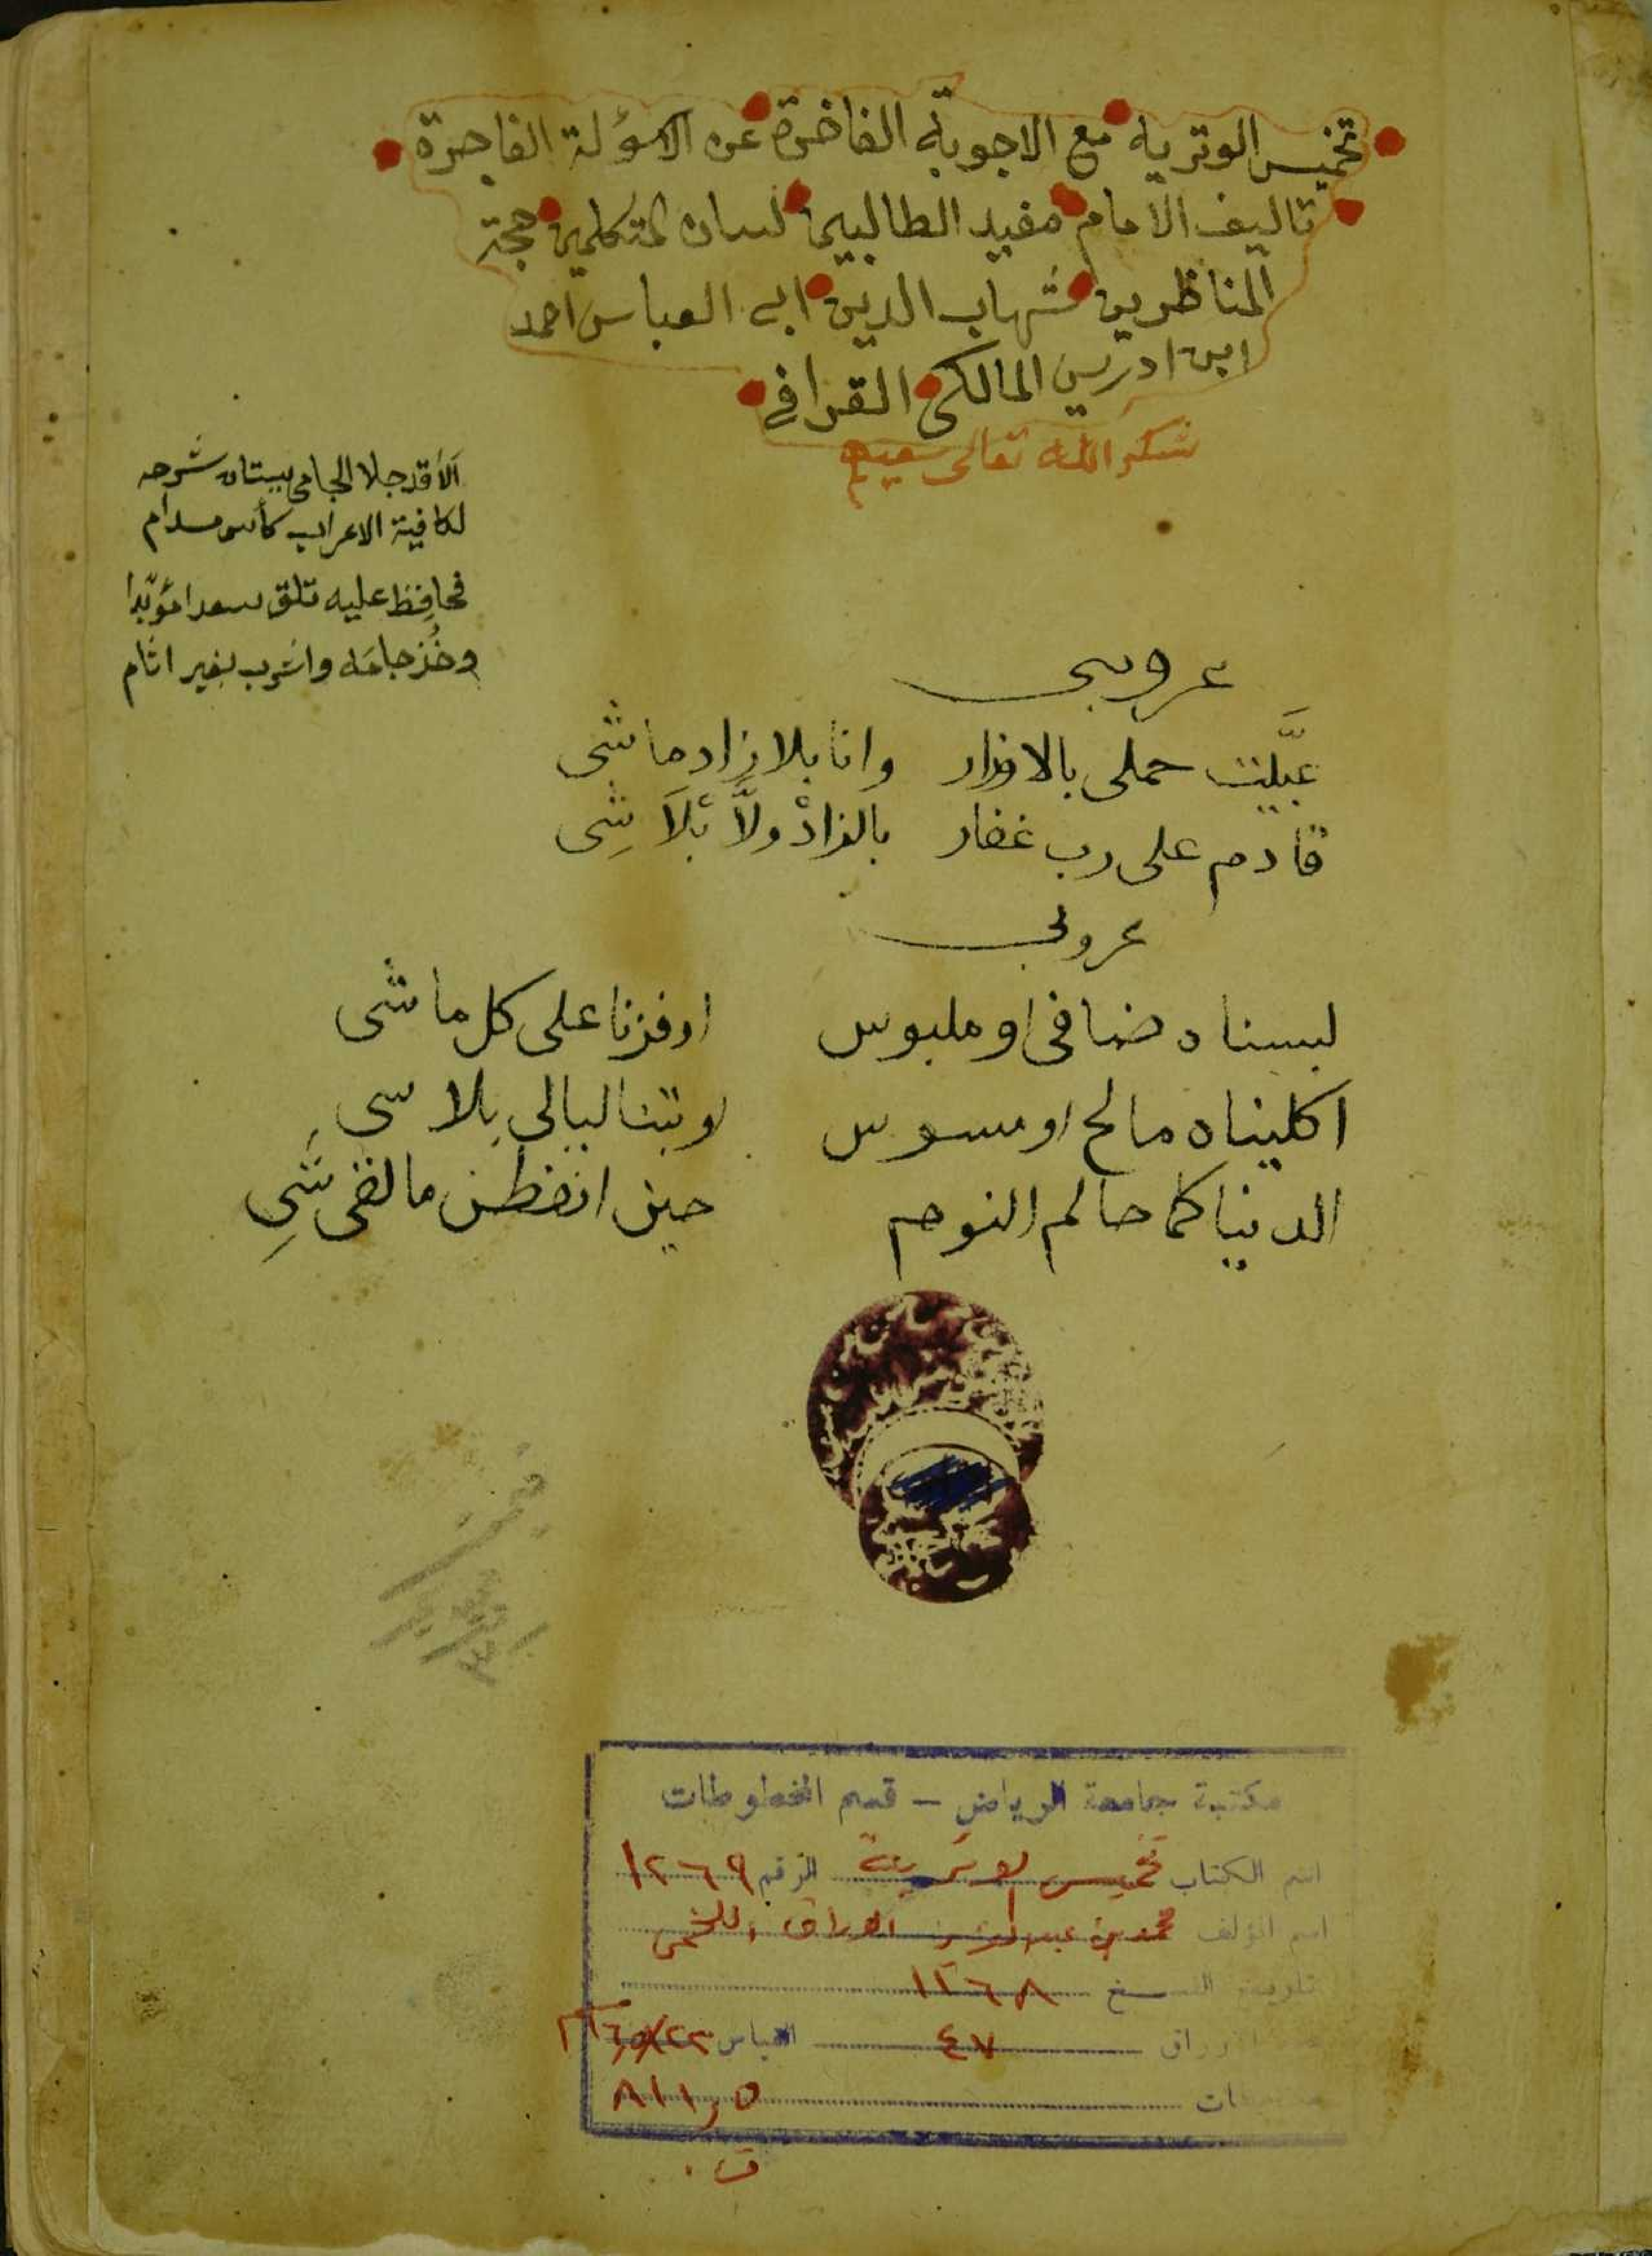 تخميس الوتريه مع الاجوبة الفاخرة عن الاسؤلة الفاجرة
تاليف الامام مفيد الطالبين لسان المتكلمين حجة
المناظرين شهاب الدين ابي العباس احمد
ابن ادريس المالكي القرافي
شكر الله تعالى سعيه
اَلاَ قد جلا الجامي ببستان شرحه
لكافية الاعراب كأس مدام
فحافِظ عليه تلق سعدا مؤبّدا
وخُذ جامَه واشرب بغير اثام
عروبي
عبَّيت حملى بالاوزار وانا بلا زاد ماشى
قادم على رب غفار بالزادْ ولَّا بْلَا شِى
عروبي
لبسناه ضافى او ملبوس اوفزنا على كل ماشى
اكليناه مالح او مسوس او بتنا ليالى بلا شى
الدنيا كما حالم النوم حين انفطن ما لقى شَىِ
مكتبة جامعة الرياض - قسم المخطوطات
اسم الكتاب تخميس الوترية الرقم ١٢٦٩
اسم المؤلف محمد بن عبد العزيز الوراق اللخمي
تاريخ النسخ ١٢٦٨
الاوراق ٤٧ القياس
٨١١٫٥
ت .